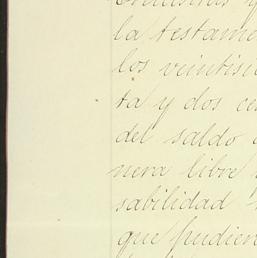 la testame
los veintisi
ta y dos ce
del saldo
nera libre
sabilidad
que pudien